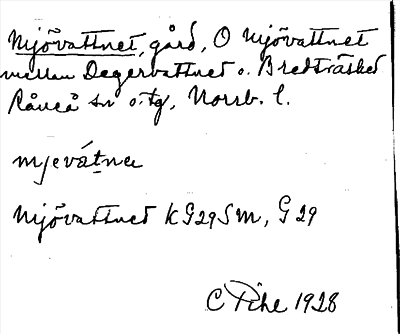 Mjövattnet, gård, O Mjövattnet
mellan Degervattnet o. Bredträsket
Råneå sn o. tg, Norrb. l.
mjevátnee
Mjövattnet KG29SM, G 29
C Pihl 1928